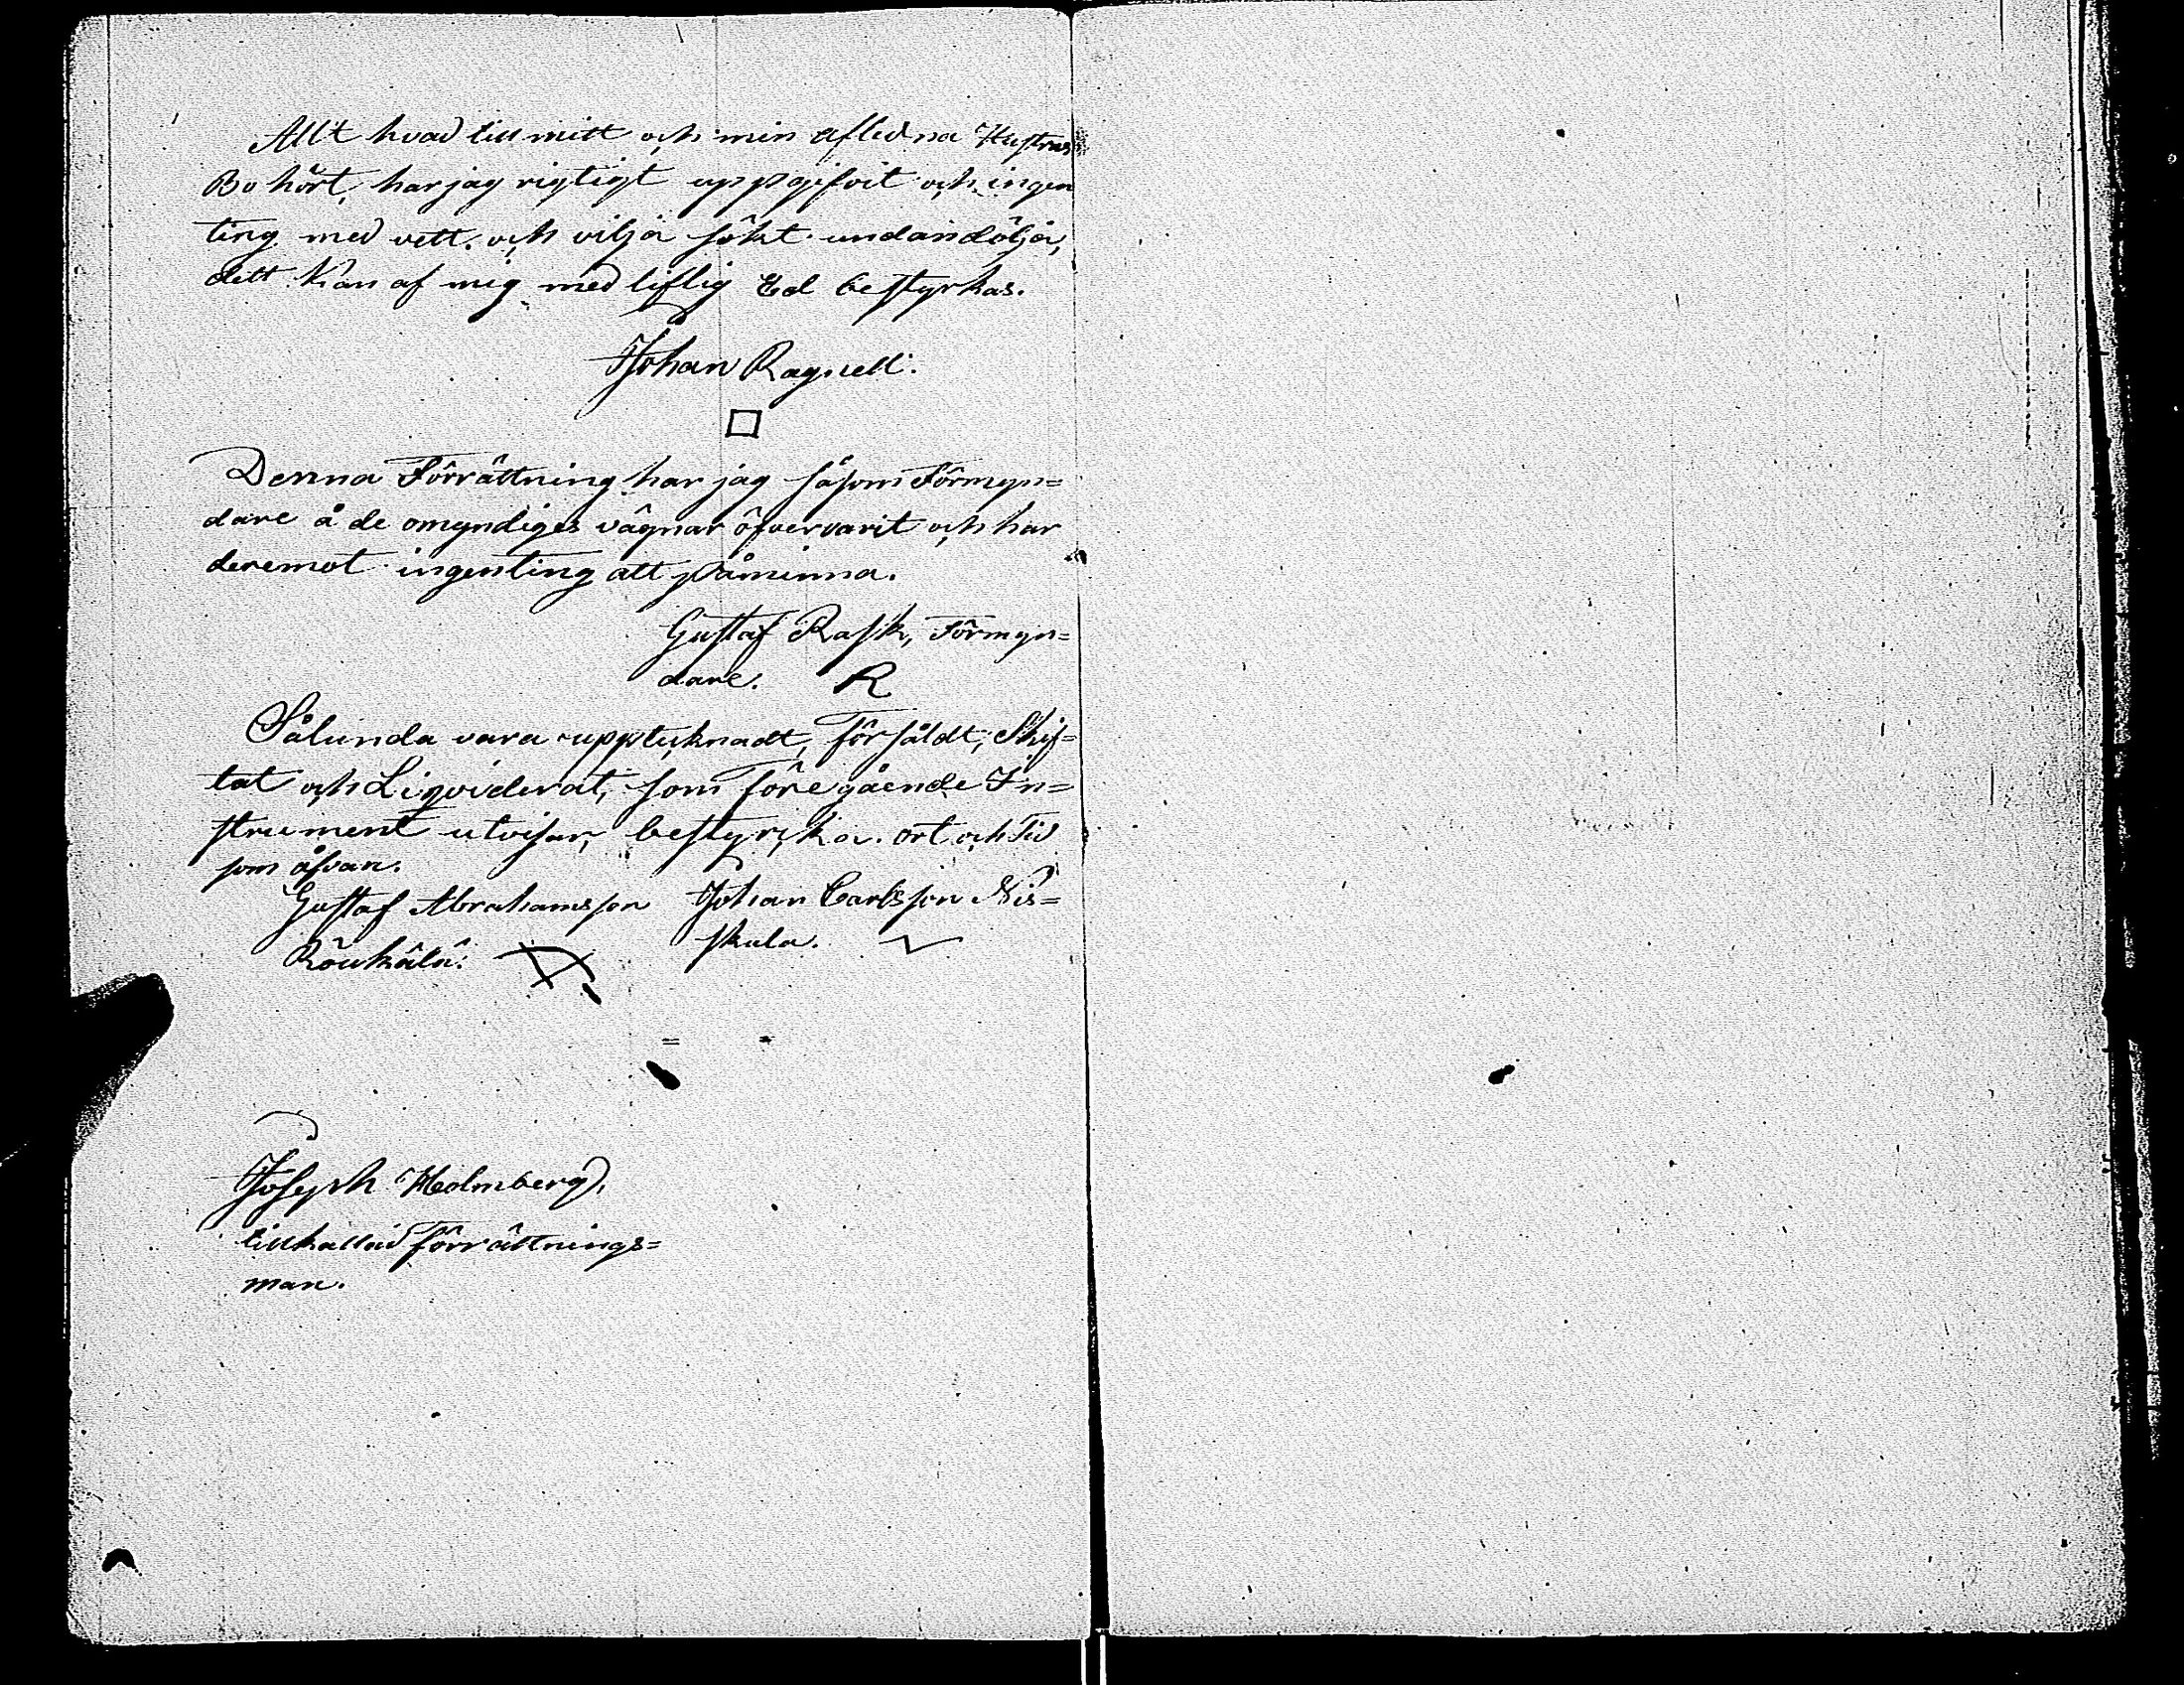 Allt hvad till mitt och min aflidna Hustrus
Bo hört, har jag rigtigt uppgifvit och ingen
ting med vett och vilja sökt undandölja,
dett kan af mig med liflig Ed bestyrkas.
Johan Ragnell.
Denna Förrättning har jag såsom Förmyn=
dare å de omyndiges vägnar öfvervarit och har
deremot ingenting att påminna.
Gustaf Rask, Förmyn=
dare. R
Sålunda vara upptecknadt, försåldt, Skif=
tat och Liqviderat, som Föregående In=
strument utvisar, bestyrcka. ort och Tid
som åfvan.
Gustaf Abrahamsson Johan Carlsson Nis=
Röukälä: skala.
Joseph Holmberg,
tillkallad Förrättnings=
man.